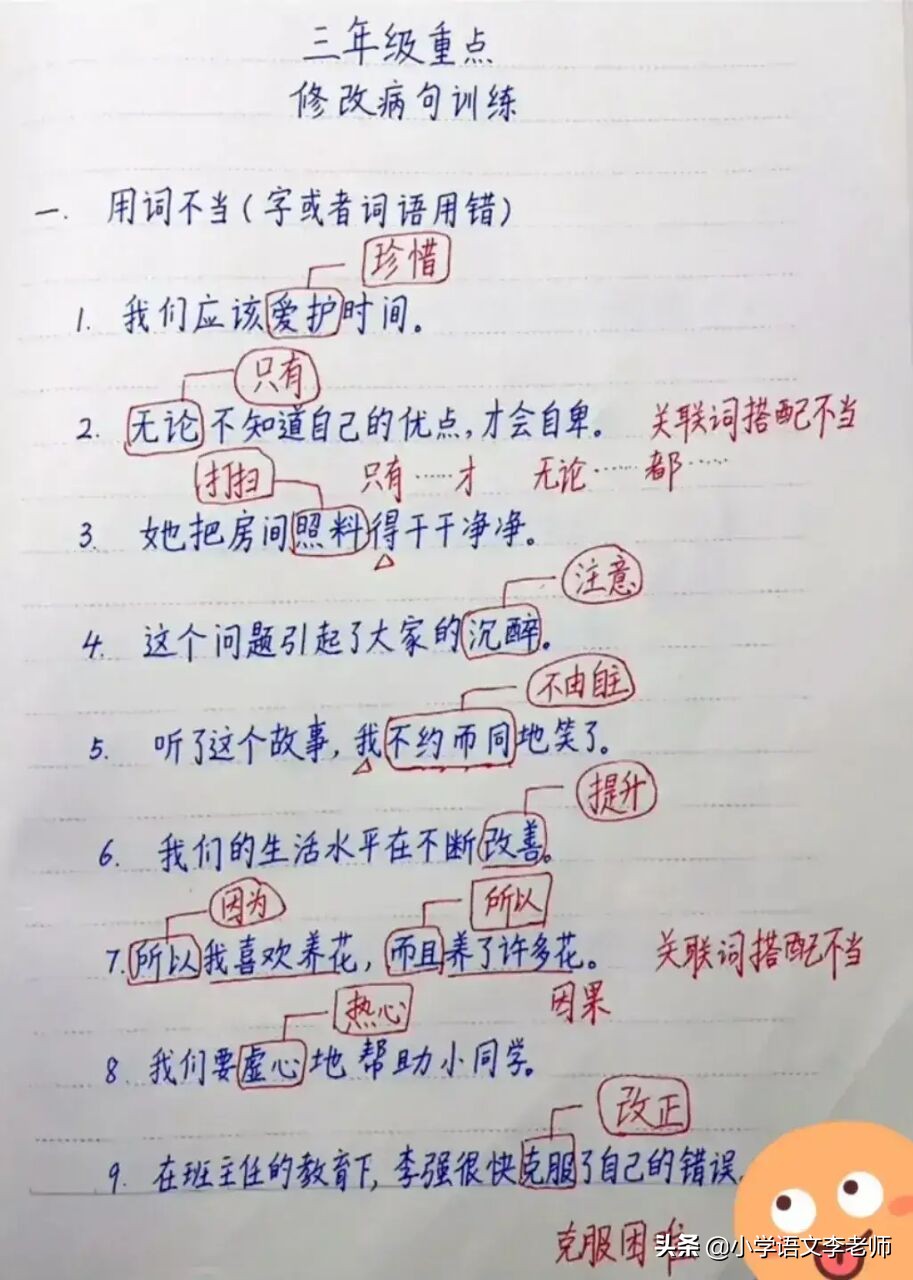 三年级重点
修改病句训练
一. 用词不当(字或者词语用错)
珍惜
1. 我们应该爱护时间。
只有
2. 无论不知道自己的优点,才会自卑。 关联词搭配不当
打扫 只有……才 无论……都……
3. 她把房间照料得干干净净。
注意
4. 这个问题引起了大家的沉醉。
不由自主
5. 听了这个故事,我不约而同地笑了。
提升
6. 我们的生活水平在不断改善。
因为 所以
7. 所以我喜欢养花,而且养了许多花。 关联词搭配不当
热心 因果
8. 我们要虚心地帮助小同学。
改正
9. 在班主任的教育下,李强很快克服了自己的错误。
克服困难
头条 @小学语文李老师